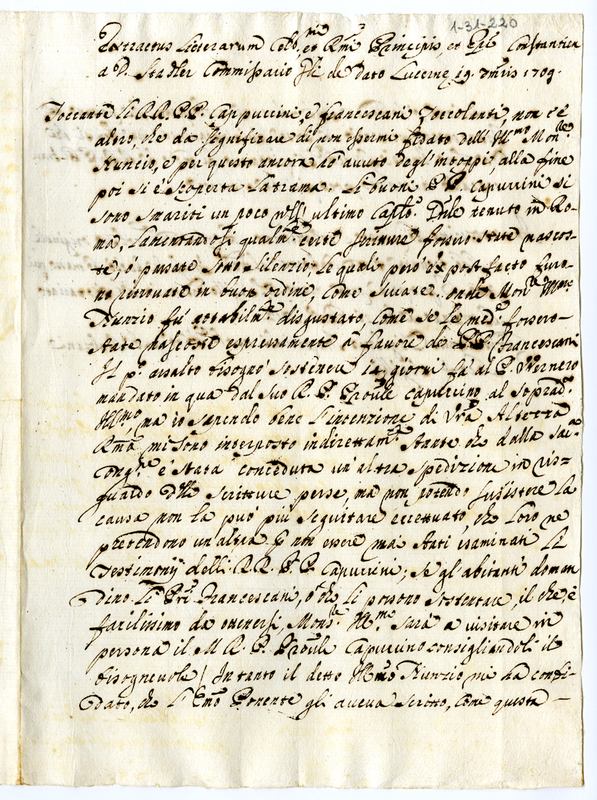 1-31-220
Extractus Literarum Cels.mi et R.mi Principis, et Ep.i Constantien
a D. Stadler Commissario de dato Lucerne 19. 1709.
Toccante li RR. PP. Cappuccini, e Francescani Zoccolanti, non c'è
altro, che da significare di non essermi fidato dell' Ill.mo Mon.re
Nuncio, e per questo ancora hò avuto degl'intoppi, alla fine
poi si è scoperta la trama. Li buoni PP. Capuccini si
sono smariti un poco ultimo Cap.lo tenuto in Ro-
ma, lamentandosi qualm.te certe scritture fossero state nascos-
te, ò passate sotto silenzio, le quali però ex post facto furo-
no ritrovate in buon ordine, come sviate, onde Mon.r Ill.mo
Nunzio fù notabilm.te disgustato, come se le med.e fossero
state nascoste espressamente à favore de PP. Francescani
Il p.o assalto bisognò sostenere giorni fà al P. Wernero
mandato in qua dal suo R. P. Prov.le capuccino al soprad.o
Ill.mo ma io sapendo bene l'intenzione di V.ra Altezza
R.ma mi sono interposto indirettam.te stante che dalla Sac.
Cong.ne è stata conceduta un'altra spedizione in ris-
guardo delle scritture perse, ma non potendo sussistere la
causa non la può più seguitare eccettuato, che loro ne
pretendono un'altra p non essere mai stati esaminati li
Testimonij delli RR. PP. Capuccini; se gl'abitanti doman
dino li P.ri Francescani, ò che li possono sostentare, il che, è
facilissimo da ottenersi, Mons.re Ill.mo sarà a visitare in
persona il M. R. P. Prov.le Capuccino consigliandoli il
bisognevole! In tanto il detto Ill.mo Nunzio mi ha confi-
dato, che l'Em.o Ponente gli aveva scritto, come questa